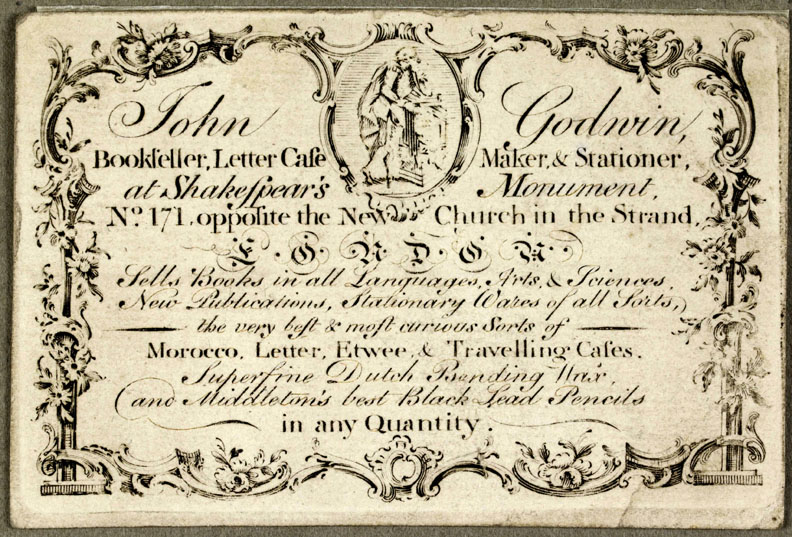 John Godwin,
Bookſeller, Letter Caſe Maker, & Stationer,
at Shakeſpear's Monument,
No. 171, oppoſite the New Church in the Strand,
LONDON.
Sells Books in all Languages, Arts, & Sciences,
New Publications, Stationary Wares of all Sorts,
the very beſt & moſt curious Sorts of
Morocco, Letter, Etwee, & Travelling Caſes.
Superfine Dutch Bending Wax,
and Middleton's best Black Lead Pencils
in any Quantity.